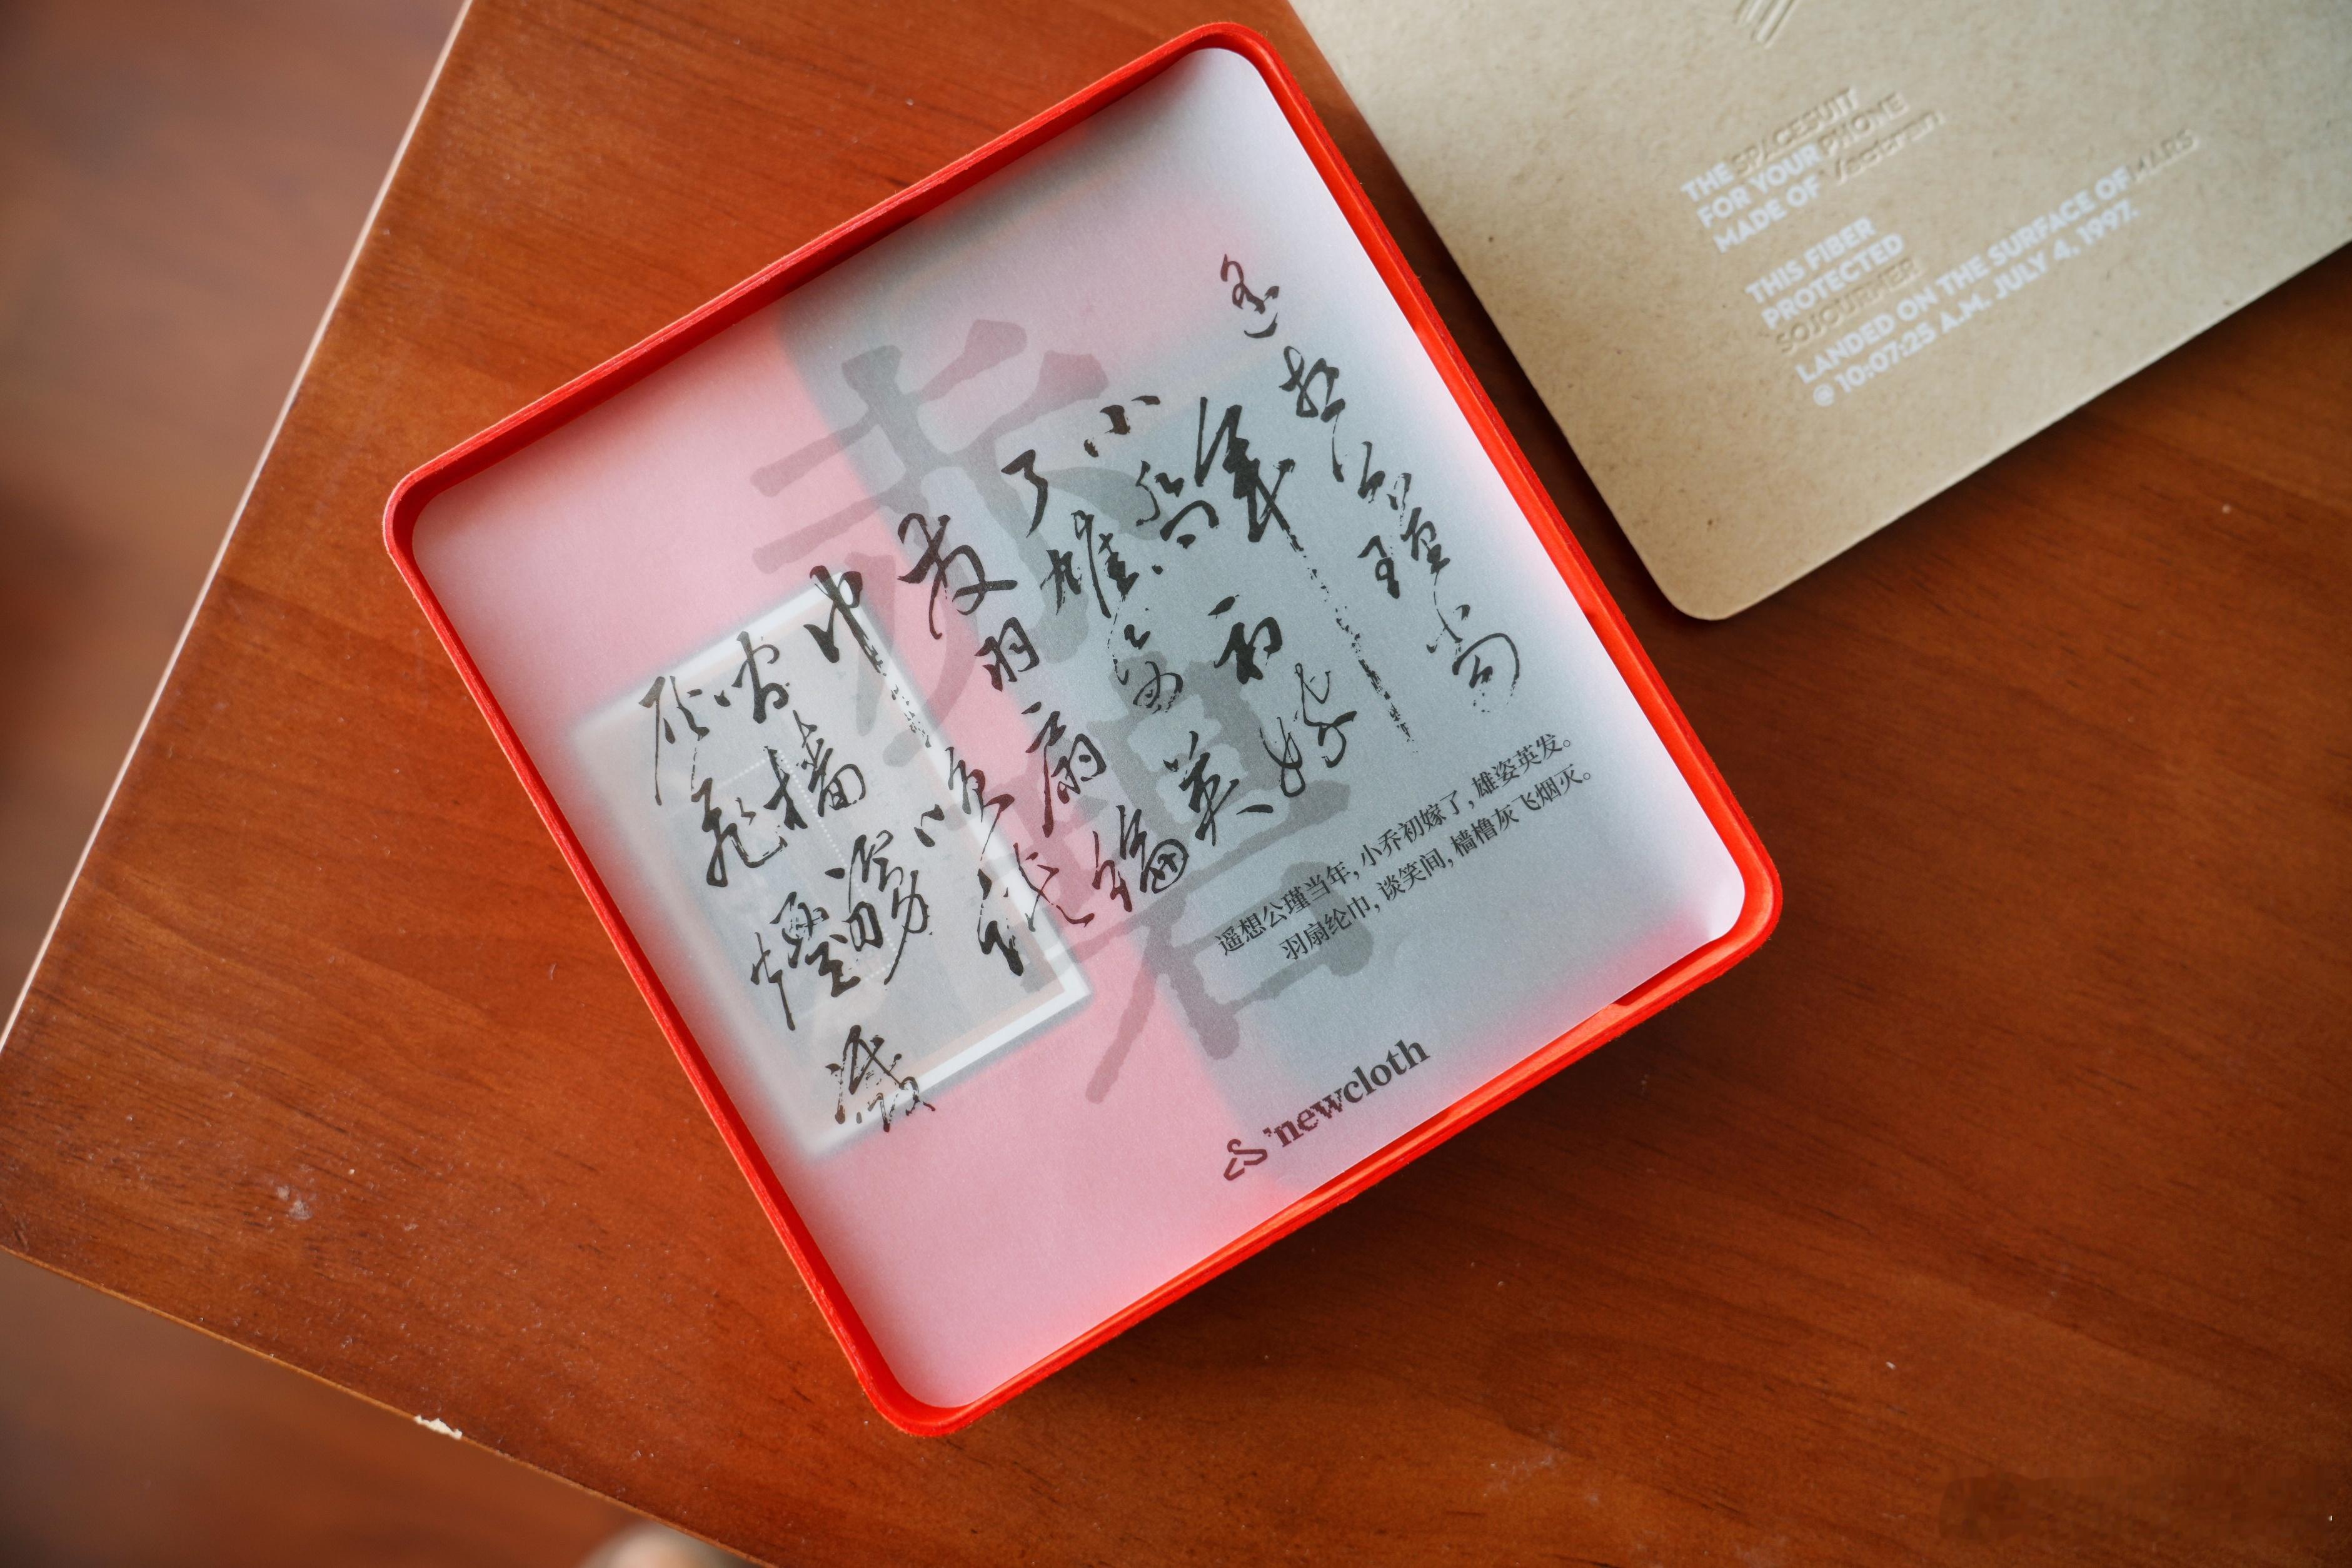 遥想公瑾當
年
小喬初嫁
了雄姿英
發羽扇綸
巾笑談
間檣
灰飛煙滅
赤
遥想公瑾当年，小乔初嫁了，雄姿英发。
羽扇纶巾，谈笑间，樯橹灰飞烟灭。
'newcloth
THE SPACESUIT
FOR YOUR PHONE
MADE OF Vectran
THIS FIBER
PROTECTED
SOJOURNER
LANDED ON THE SURFACE OF MARS
@ 10:07:25 A.M. JULY 4, 1997.